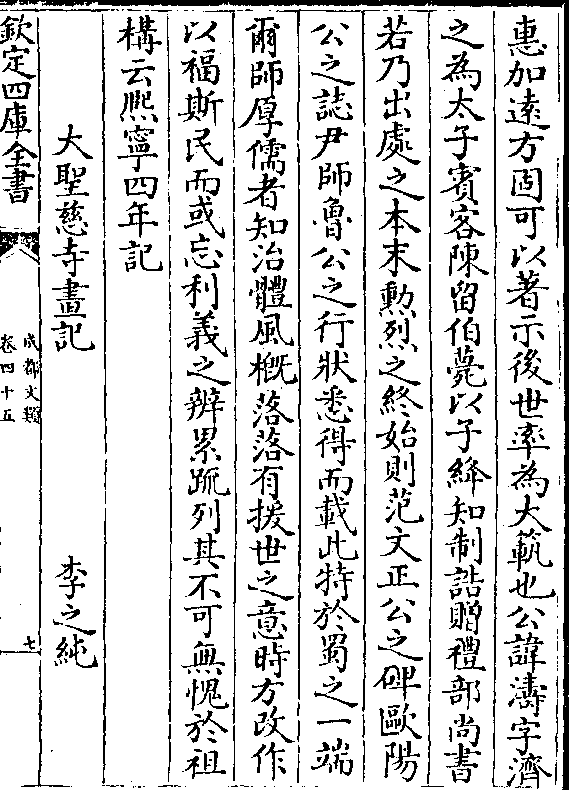 惠加遠方固可以著示後世率為大範也公諱濤字濟
之為太子賓客陳留伯薨以子絳知制誥贈禮部尚書
若乃出處之本末勲烈之終始則范文正公之碑歐陽
公之誌尹師魯公之行狀悉得而載此特於蜀之一端
爾師厚儒者知治體風概落落有援世之意時方改作
以福斯民而或忘利義之辨累䟽列其不可無愧於祖
構云熈寧四年記
大聖慈寺畫記 李之純
欽定四庫全書
成都文類
卷四十五
七